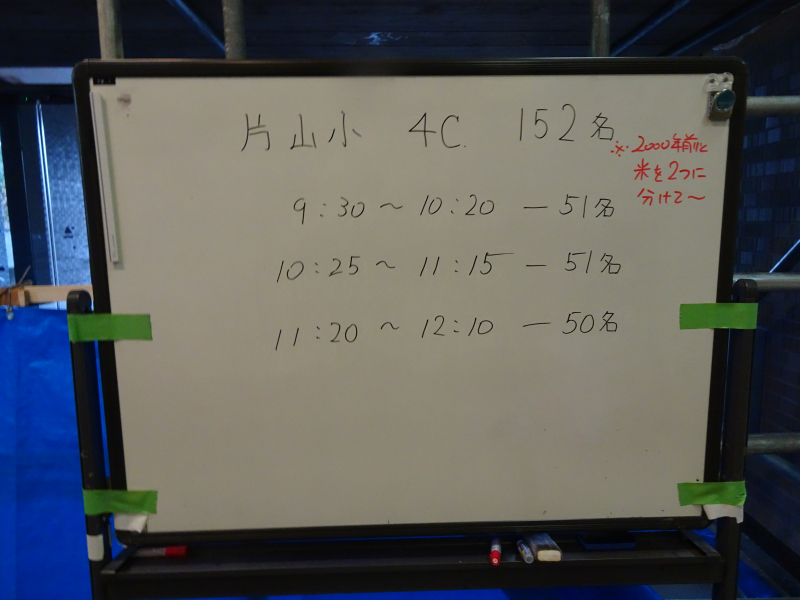 片山小 4C. 152名
※2000年前と
米を2つに
分けて〜
9:30 〜 10:20 ー 51名
10:25 〜 11:15 ー 51名
11:20 〜 12:10 ー 50名